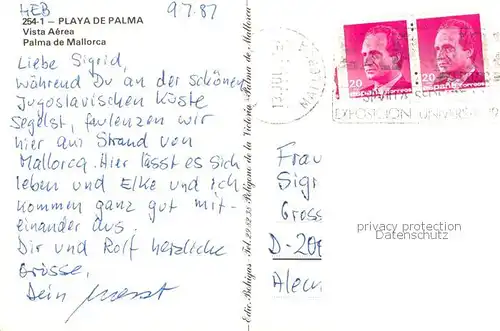 HEB
9.7.87
254-1 – PLAYA DE PALMA
Vista Aérea
Palma de Mallorca
Liebe Sigrid,
während Du an der schönen
Jugoslavischen Küste
segelst, faulenzen wir
hier am Strand von
Mallorca. Hier lässt es sich
leben und Elke und ich
kommen ganz gut mit-
einander aus.
Dir und Rolf herzliche
Grüsse,
Dein
Edic. Bohigas - Polígono de la Victoria - Palma de Mallorca
20
españa correos
20
españa correos
EXPOSICION UNIVERSAL
Frau
Sigr
Gross
D-200
Alem
privacy protection
Datenschutz